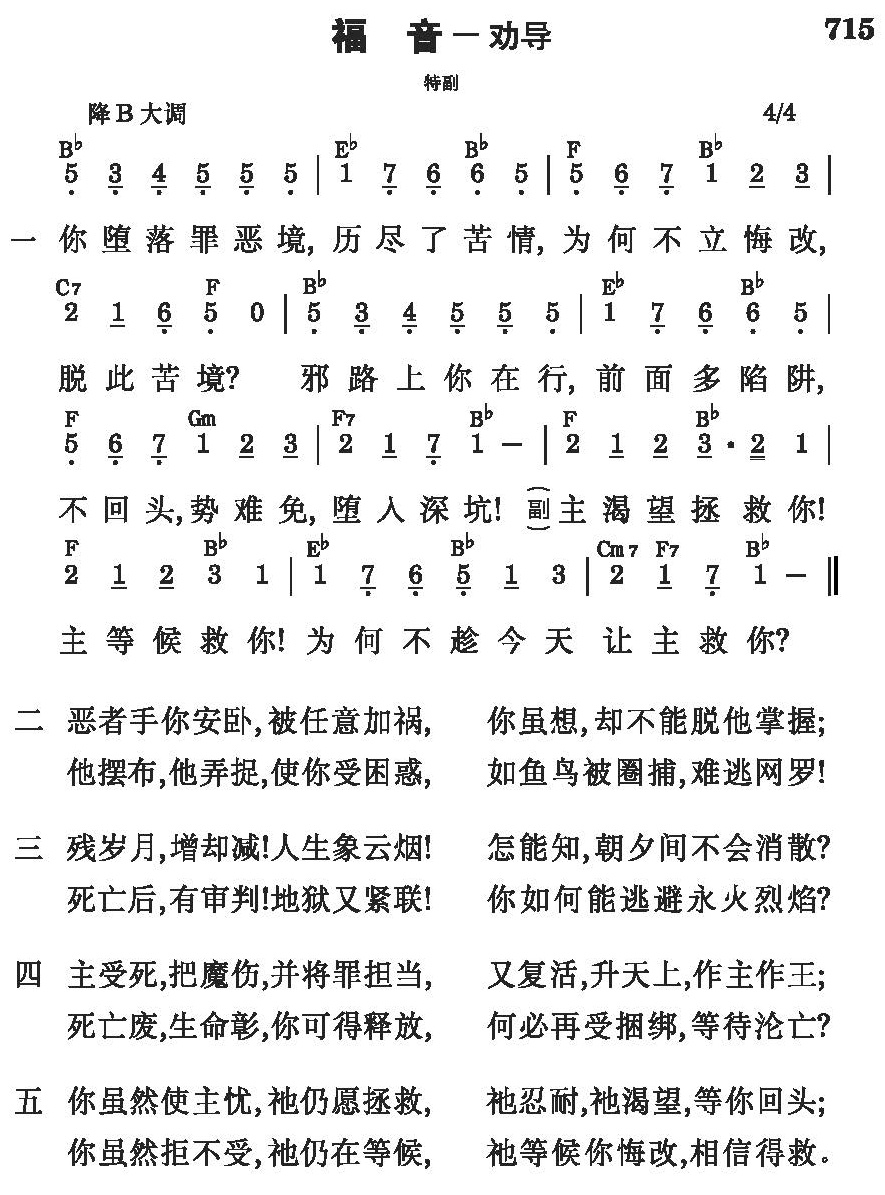 福 音－劝导 715
特副
降 B 大调 4/4
B♭ E♭ B♭ F B♭
5̣ 3̣ 4̣ 5̣ 5̣ 5̣ | 1 7̣ 6̣ 6̣ 5̣ | 5̣ 6̣ 7̣ 1 2 3 |
一 你堕落罪恶境,历尽了苦情,为何不立悔改,
C7 F B♭ E♭ B♭
2 1 6̣ 5̣ 0 | 5̣ 3̣ 4̣ 5̣ 5̣ 5̣ | 1 7̣ 6̣ 6̣ 5̣ |
脱此苦境? 邪路上你在行,前面多陷阱,
F Gm F7 B♭ F B♭
5̣ 6̣ 7̣ 1 2 3 | 2 1 7̣ 1 － | 2 1 2 3 · 2 1 |
不回头,势难免,堕入深坑!(副)主渴望拯救你!
F B♭ E♭ B♭ Cm7 F7 B♭
2 1 2 3 1 | 1 7̣ 6̣ 5̣ 1 3 | 2 1 7̣ 1 － ‖
主等候救你!为何不趁今天让主救你?
二 恶者手你安卧,被任意加祸, 你虽想,却不能脱他掌握;
他摆布,他弄捉,使你受困惑, 如鱼鸟被圈捕,难逃网罗!
三 残岁月,增却减!人生象云烟! 怎能知,朝夕间不会消散?
死亡后,有审判!地狱又紧联! 你如何能逃避永火烈焰?
四 主受死,把魔伤,并将罪担当, 又复活,升天上,作主作王;
死亡废,生命彰,你可得释放, 何必再受捆绑,等待沦亡?
五 你虽然使主忧,祂仍愿拯救, 祂忍耐,祂渴望,等你回头;
你虽然拒不受,祂仍在等候, 祂等候你悔改,相信得救。